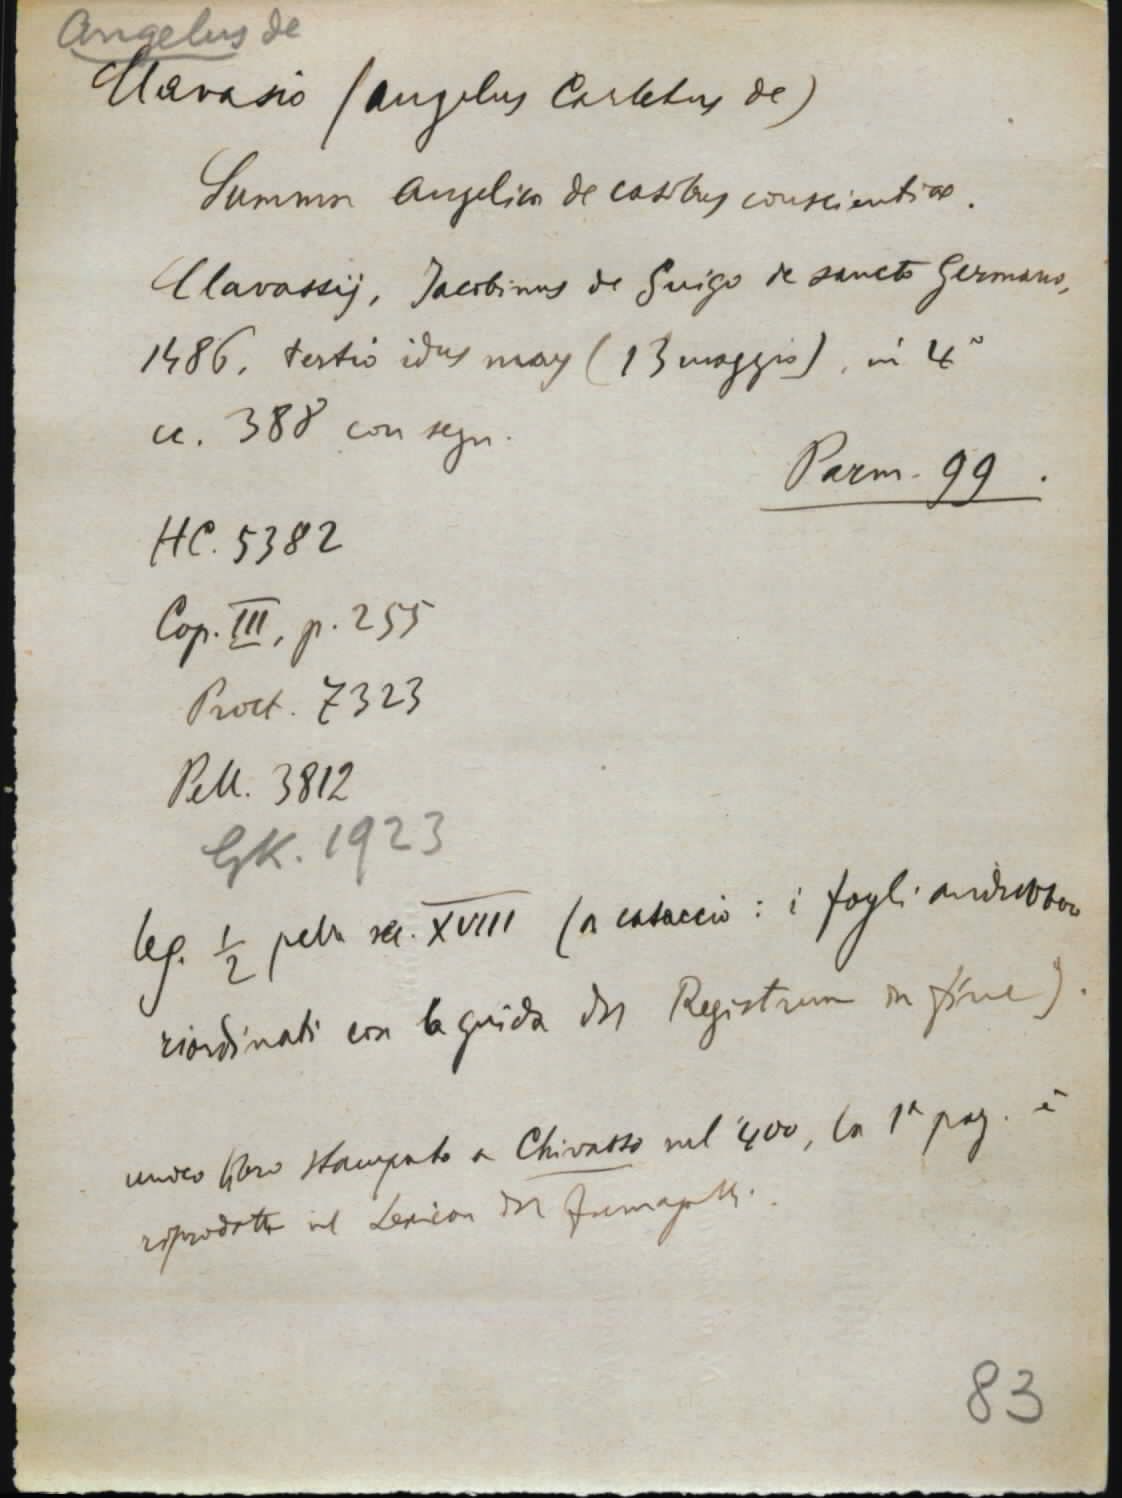 Angelus de
Clavasio (Angelus Carletus de)
Summa angelica de casibus conscientiae.
Clavassij, Jacobinus de Suigo de sancto Germano,
1486, tertio idus may (13 maggio), in 4°
cc. 388 con segn.
Parm. 99.
HC. 5382
Cop. III, p. 255
Proct. 7323
Pell. 3812
GK. 1923
leg. 1/2 pelle sec. XVIII (a casaccio: i fogli andrebbero
riordinati con la guida del Registrum in fine).
unico libro stampato a Chivasso nel '400, la 1ª pag. è
riprodotta nel Lexicon del Fumagalli.
83